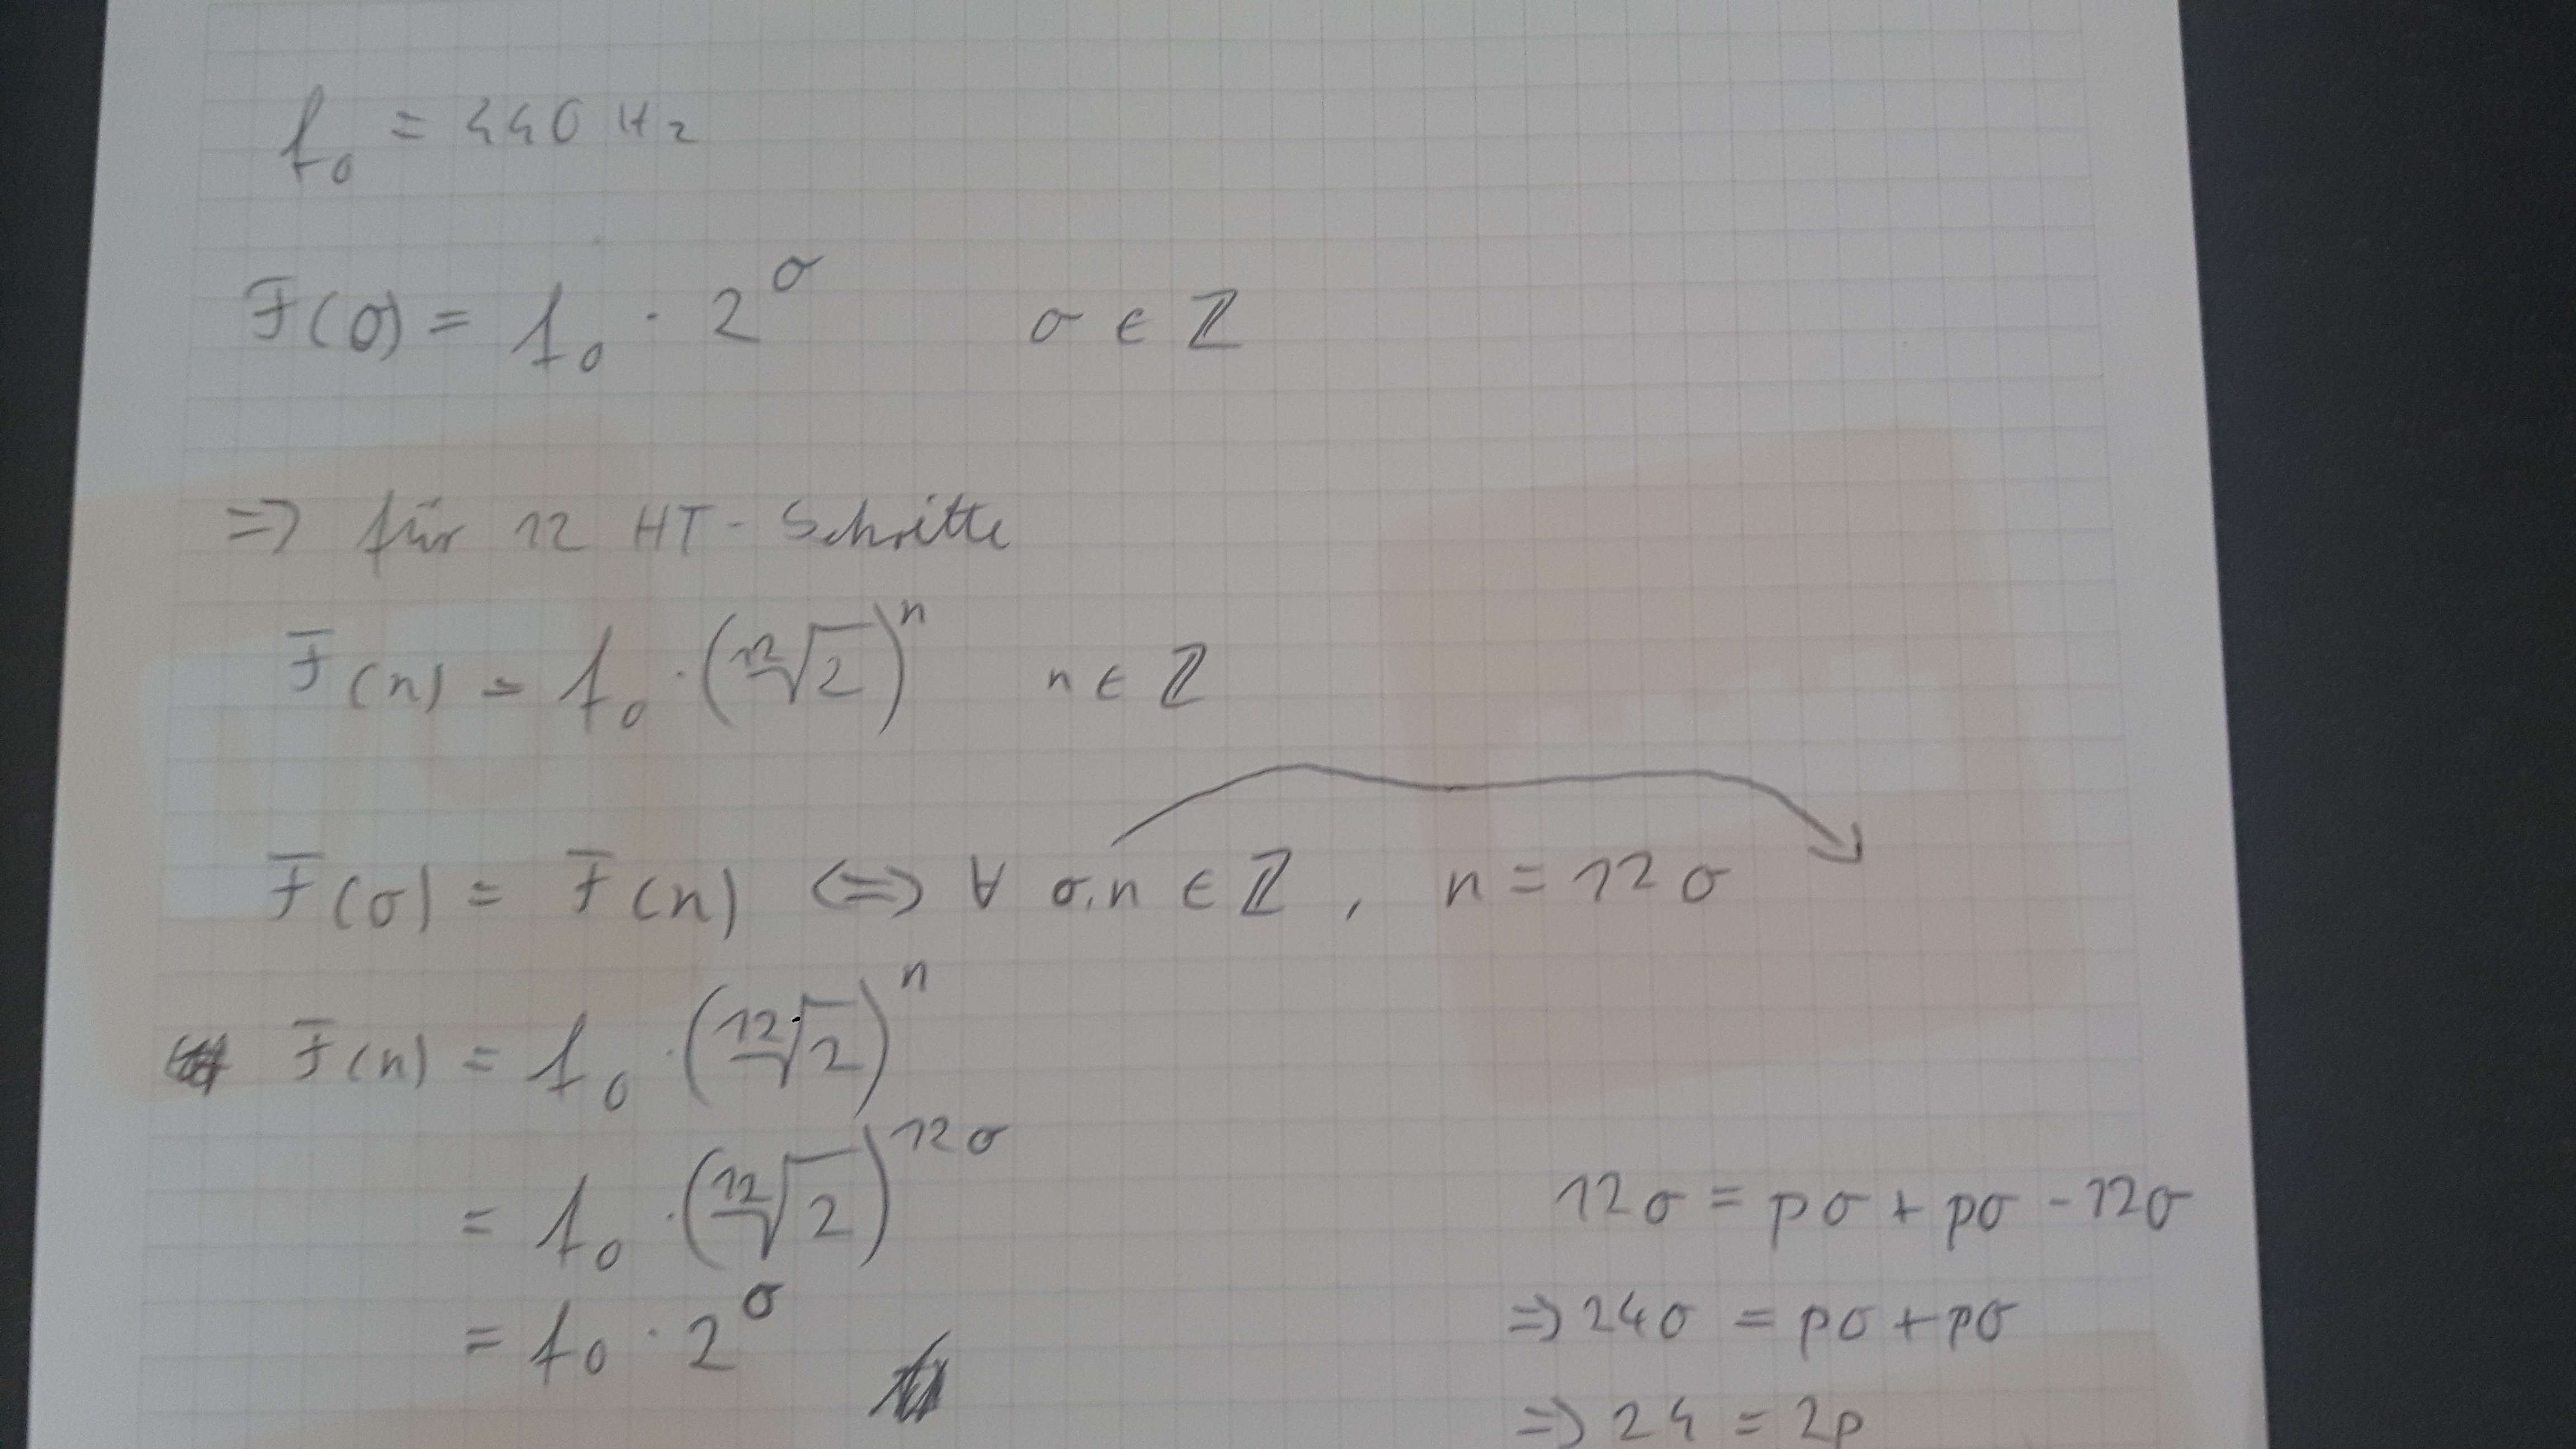 f₀ = 440 Hz
F(σ) = f₀ · 2^σ σ ∈ ℤ
=> für 12 HT - Schritte
F(n) = f₀ · (¹²√2)^n n ∈ ℤ
F(σ) = F(n) <=> ∀ σ,n ∈ ℤ , n = 12σ
F(n) = f₀ · (¹²√2)^n
= f₀ · (¹²√2)^12σ
= f₀ · 2^σ
12σ = pσ + pσ - 12σ
=> 24σ = pσ + pσ
=> 24 = 2p